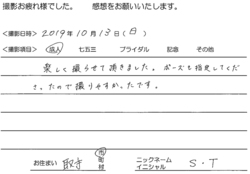 撮影お疲れ様でした。 感想をお願いいたします。
<撮影日時> 2019年10月13日(日)
<撮影項目> 成人 七五三 ブライダル 記念 その他
楽しく撮らせて頂きました。ポーズも指定してくだ
さったので撮りやすかったです。
お住まい 取手 市 町 村 ニックネーム イニシャル S・T